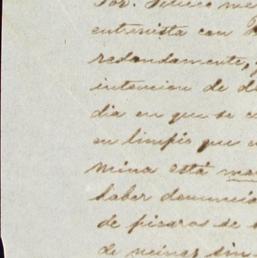 entrevista con
redondamente,
intencion de
dia en que se
en limpio que
mina está
haber denuncia
de picaros se
de minas sin